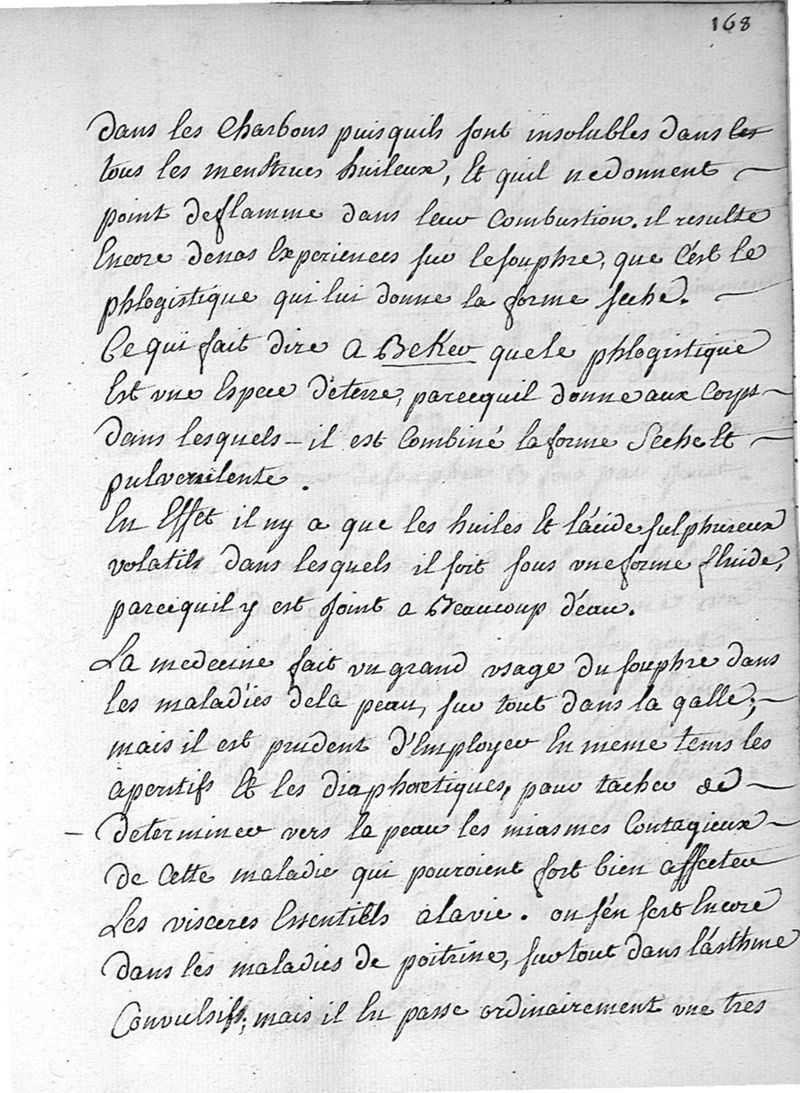 168
dans les charbons puisquils sont insolubles dans les
tous les menstrues huileux, Et quil nedonnent
point deflamme dans leur Combustion. il resulte
Encore denos Experiences sur lesouphre, que C'est le
phlogistique qui lui donne la forme seche.
Ce qui fait dire a Beker quele phlogistique
Est vne Espece de terre, parcequil donne aux Corps
dans lesquels il est Combiné la forme Seche Et
pulverulente.
En Effet il ny a que les huiles Et l'acide sulphureux
volatils dans lesquels il soit sous vne forme fluide,
parcequil y est Joint a Beaucoup d'eau.
La medecine fait vn grand vsage du souphre dans
les maladies dela peau, sur tout dans la galle;
mais il est prudent d'Employer En meme tems les
aperitifs Et les diaphoretiques, pour tacher de
determiner vers la peau les miasmes Contagieux
de Cette maladie qui pouroient fort bien affecter
Les visceres Essentiels alavie. on s'en sert Encore
dans les maladies de poitrine, surtout dans l'asthme
Convulsifs; mais il En passe ordinairement vne tres